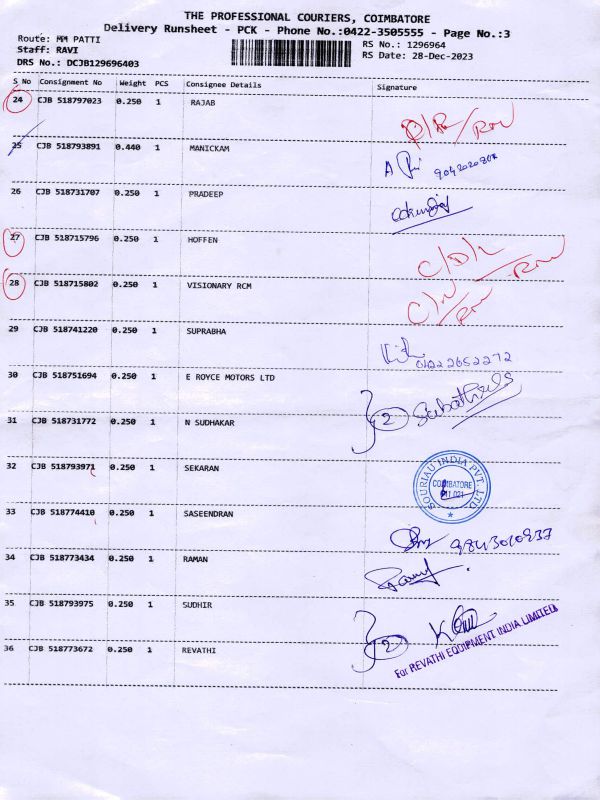 THE PROFESSIONAL COURIERS, COIMBATORE
Delivery Runsheet - PCK - Phone No.:0422-3505555 - Page No.:3
Route: MM PATTI
RS No.: 1296964
Staff: RAVI
RS Date: 28-Dec-2023
DRS No.: DCJB129696403
S No Consignment No Weight PCS Consignee Details Signature
24 CJB 518797023 0.250 1 RAJAB
25 CJB 518793891 0.440 1 MANICKAM
26 CJB 518731707 0.250 1 PRADEEP
27 CJB 518715796 0.250 1 HOFFEN C/D/L
28 CJB 518715802 0.250 1 VISIONARY RCM
29 CJB 518741220 0.250 1 SUPRABHA 04222652272
30 CJB 518751694 0.250 1 E ROYCE MOTORS LTD
2
31 CJB 518731772 0.250 1 N SUDHAKAR
32 CJB 518793971 0.250 1 SEKARAN SOURIAU INDIA PVT. LTD COIMBATORE 641 021
33 CJB 518774410 0.250 1 SASEENDRAN 9843010937
34 CJB 518773434 0.250 1 RAMAN
35 CJB 518793975 0.250 1 SUDHIR
2
36 CJB 518773672 0.250 1 REVATHI For REVATHI EQUIPMENT INDIA LIMITED